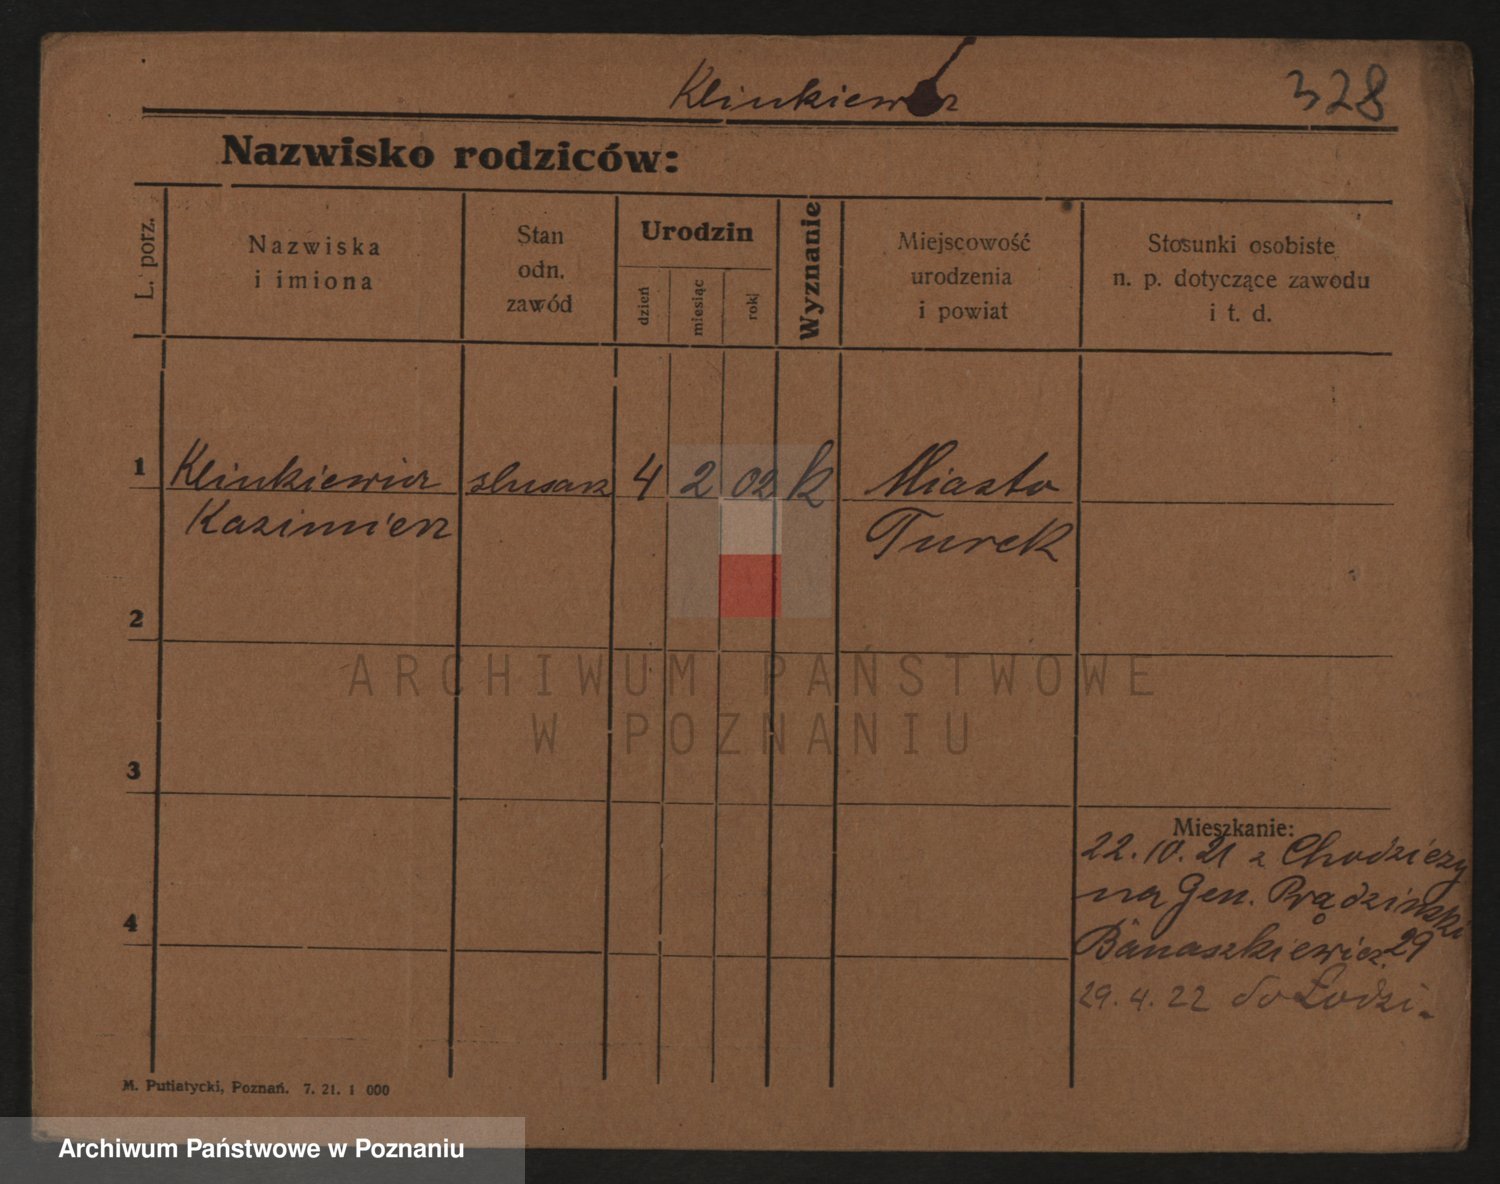 Klinkiewicz
328
Nazwisko rodziców:
L. porz.
Nazwiska
i imiona
Stan
odn.
zawód
Urodzin
dzień
miesiąc
rok
Wyznanie
Miejscowość
urodzenia
i powiat
Stosunki osobiste
n. p. dotyczące zawodu
i t. d.
1 Klinkiewicz slusarz 4 2 02 k Miasto
Kazimierz Turek
2
ARCHIWUM PAŃSTWOWE
W POZNANIU
3
Mieszkanie:
22.10.21 z Chodzieży
na Gen. Prądzinski
4
Banaszkiewicz 29
29.4.22 do Łodzi.
M. Putiatycki, Poznań. 7. 21. 1 000
Archiwum Państwowe w Poznaniu